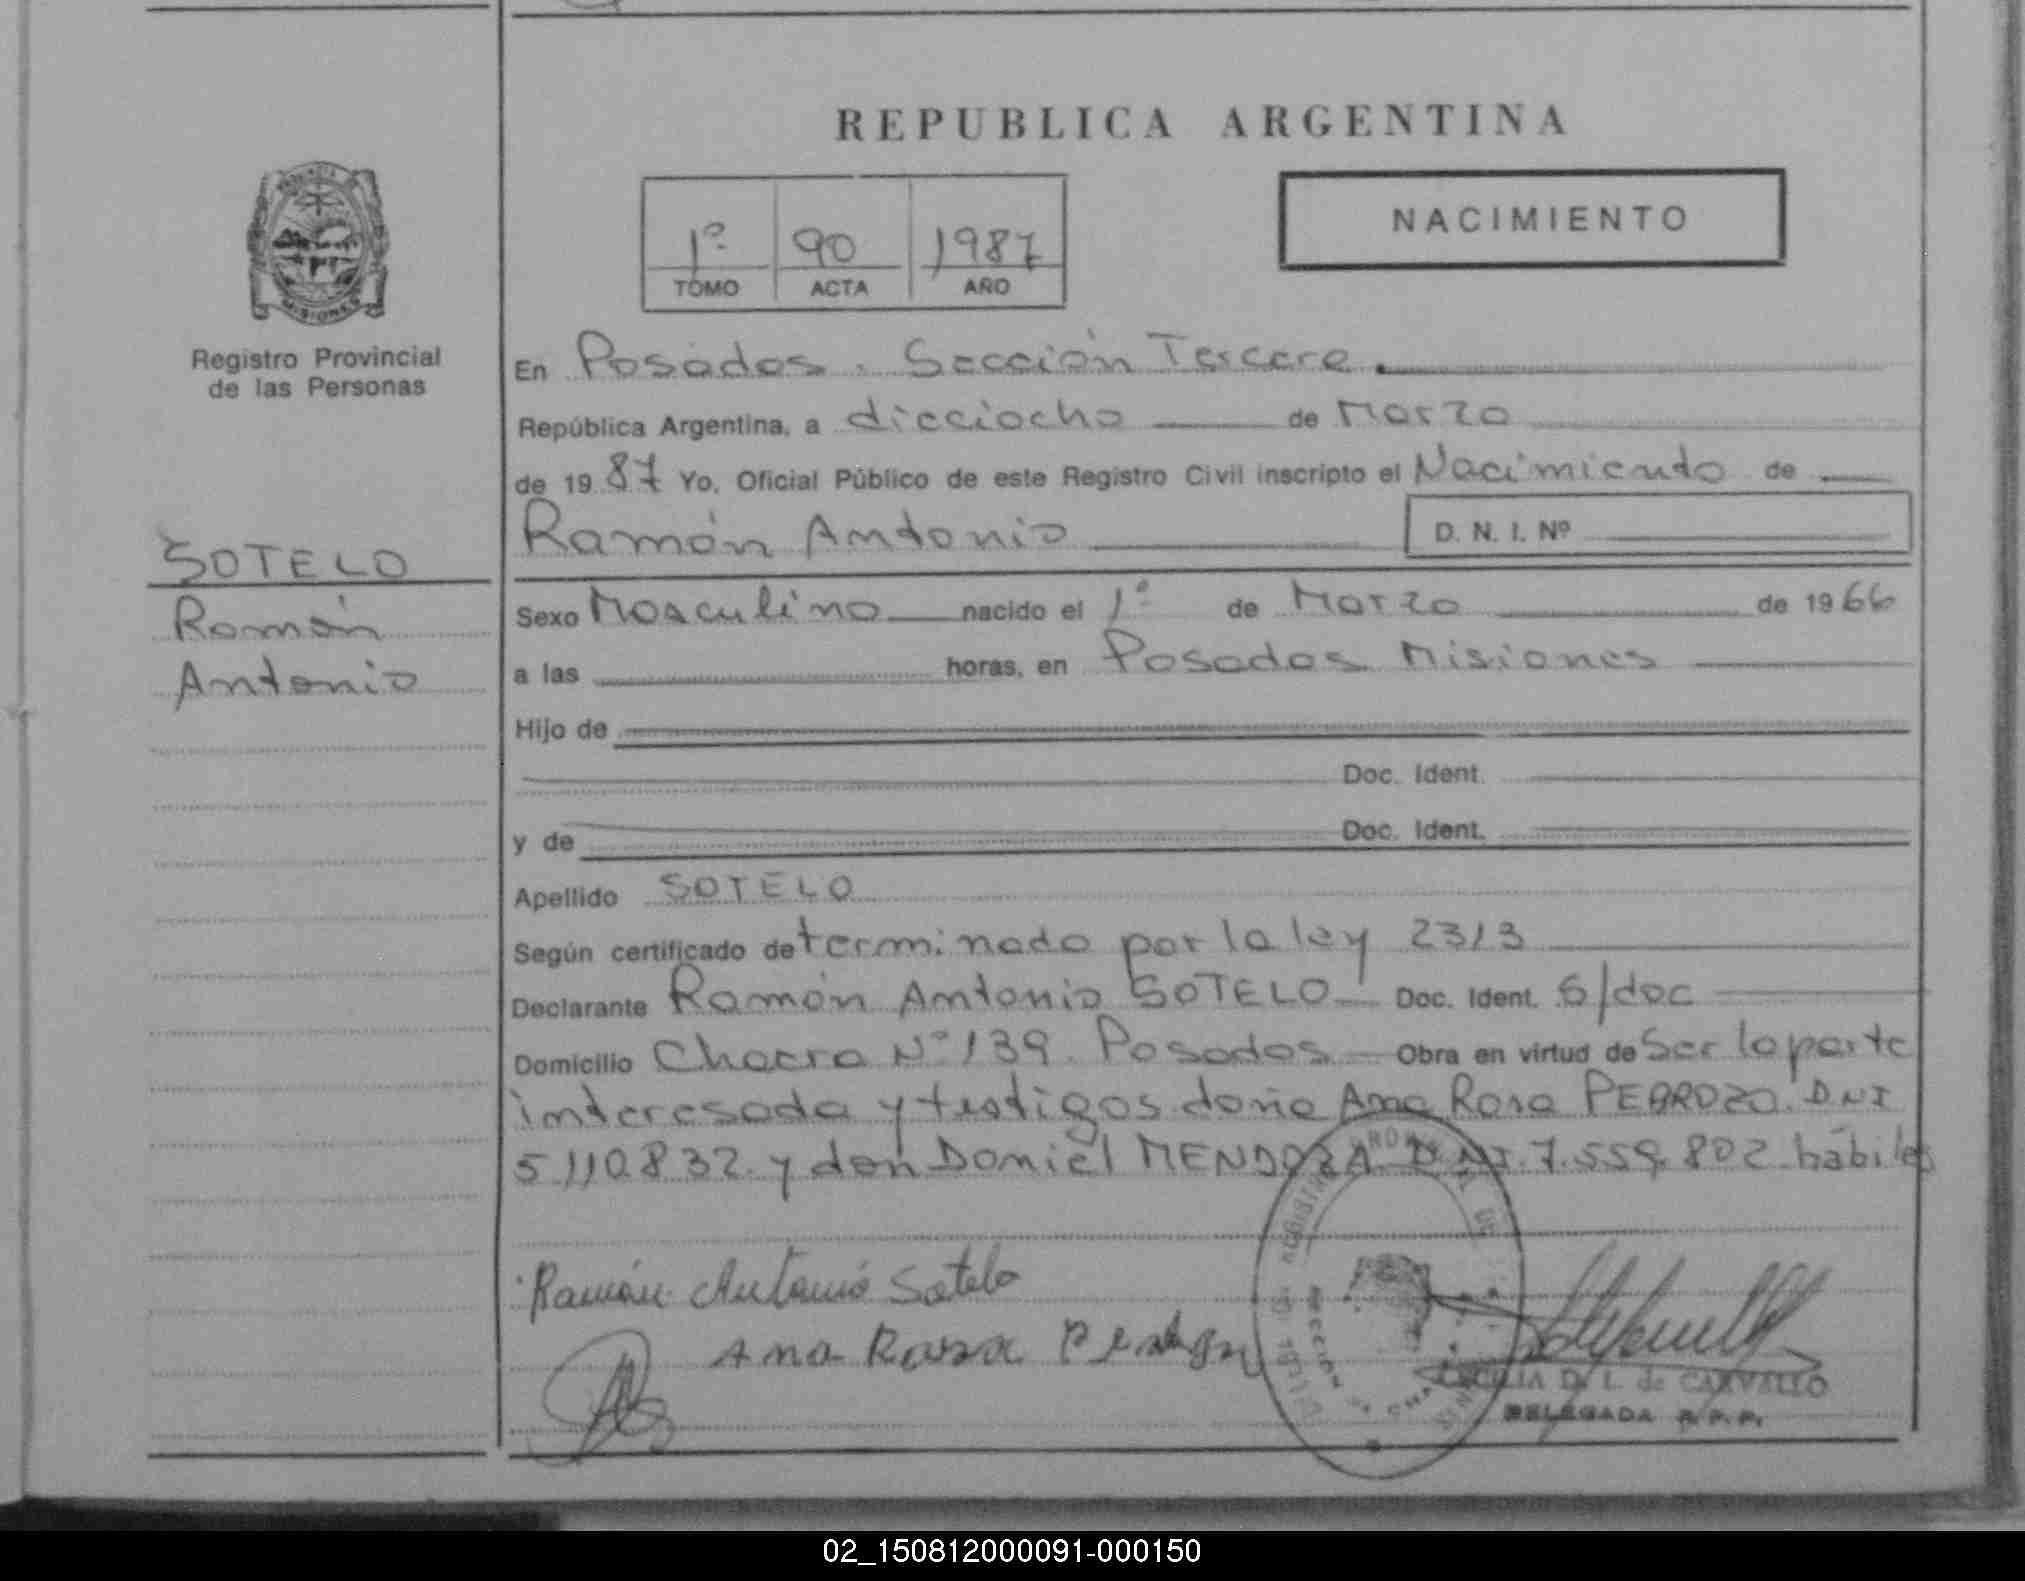 REPUBLICA ARGENTINA
NACIMIENTO
1º 90 1987
TOMO ACTA AÑO
Registro Provincial
de las Personas
En Posadas. Sección Tercera.
República Argentina, a dieciocho de Marzo
de 1987 Yo, Oficial Público de este Registro Civil inscripto el Nacimiento de
Ramón Antonio D. N. I. Nº
SOTELO
Ramón
Antonio
Sexo Masculino nacido el 1º de Marzo de 1966
a las horas, en Posadas Misiones
Hijo de
Doc. Ident.
y de Doc. Ident.
Apellido SOTELO
Según certificado determinado por la ley 2313
Declarante Ramón Antonio SOTELO Doc. Ident. S/doc
Domicilio Chacra Nº 139. Posadas Obra en virtud de Ser la parte
interesada y testigos doña Ana Rosa PEDROZO. D.N.I
5.110.832. y don Daniel MENDOZA D.N.I. 7.559.802 hábiles
Ramón Antonio Sotelo
Ana Rosa
CECILIA D. L. de CARVALLO
DELEGADA R. P. P.
02_150812000091-000150